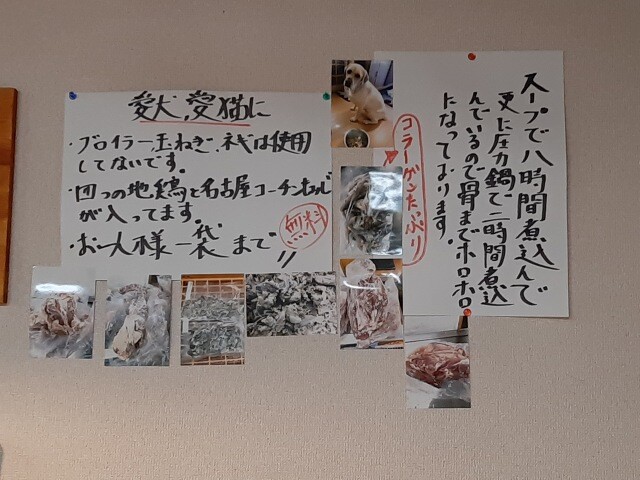 愛犬、愛猫に
・ブロイラー玉ねぎ、ネギは使用
してないです。
・四つの地鶏と名古屋コーチンなど
が入ってます。
・お一人様一袋まで
無料
スープで八時間煮込んで
更に圧力鍋で二時間煮込
んでいるので骨までホロホロ
になっております。
コラーゲンたっぷり